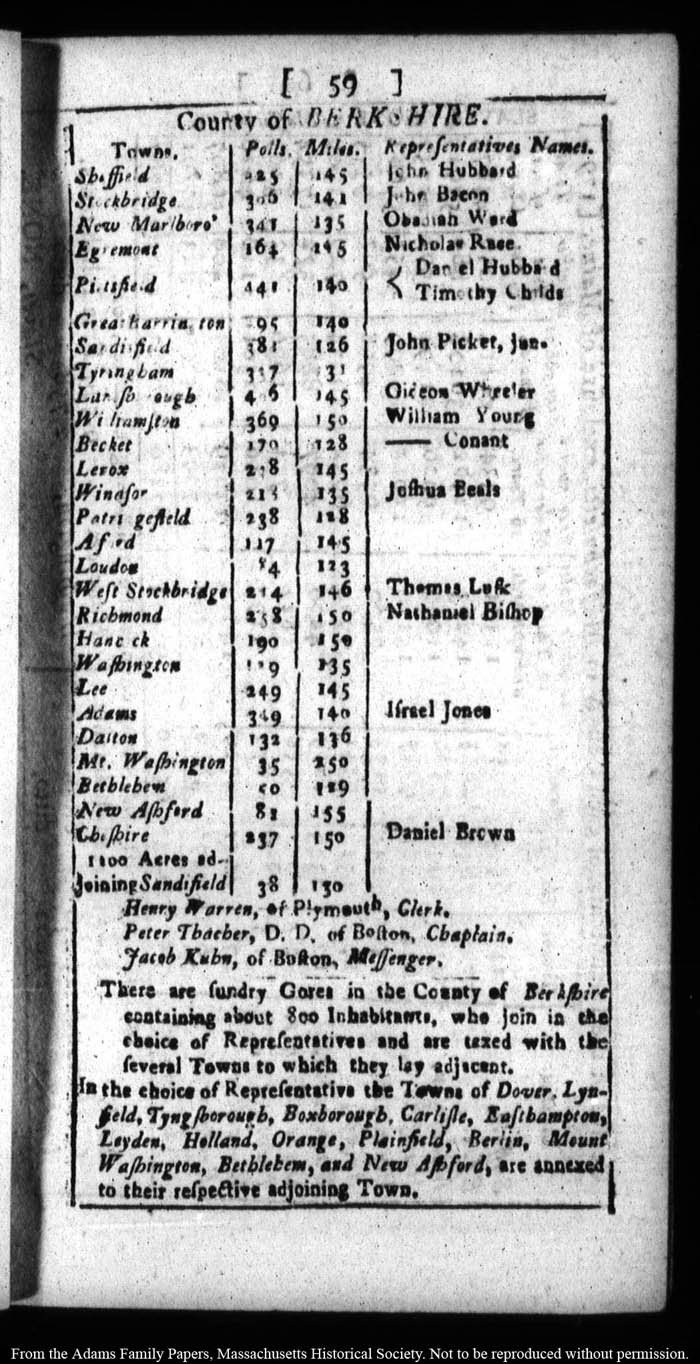 [ 59 ]
County of BERKSHIRE.
Towns. Polls. Miles. Repreſentatives Names.
Sheffield 145 John Hubbard
Stockbridge 306 141 John Bacon
New Marlboro' 341 135 Obadiah Ward
Egremont 164 145 Nicholas Race.
Pittsfield 441 140 Daniel Hubbard
Timothy Childs
Great Barrington 140
Sandisfield 381 126 John Picket, jun.
Tyringham
Lanesborough 145 Gideon Wheeler
Williamſton 369 150 William Young
Becket 170 128 —— Conant
Lenox 145
Windſor 135 Joſhua Beals
Partridgefield 238 128
Alford 117 145
Loudon 123
Weſt Stockbridge 214 146 Thomas Luſk
Richmond 258 150 Nathaniel Biſhop
Hancock 190 150
Waſhington 135
Lee 249 145
Adams 349 140 Iſrael Jones
Dalton 132 136
Mt. Waſhington 35 250
Bethlehem 50 129
New Aſhford 155
Cheſhire 237 150 Daniel Brown
1100 Acres ad-
joining Sandisfield 38 130
Henry Warren, of Plymouth, Clerk.
Peter Thacher, D. D. of Boſton, Chaplain.
Jacob Kuhn, of Boſton, Meſſenger.
There are ſundry Gores in the County of Berkſhire
containing about 800 Inhabitants, who join in the
choice of Repreſentatives and are taxed with the
ſeveral Towns to which they lay adjacent.
In the choice of Repreſentative the Towns of Dover, Lyn-
field, Tyngſborough, Boxborough, Carliſle, Eaſthampton,
Leyden, Holland, Orange, Plainfield, Berlin, Mount
Waſhington, Bethlehem, and New Aſhford, are annexed
to their reſpective adjoining Town.
From the Adams Family Papers, Massachusetts Historical Society. Not to be reproduced without permission.